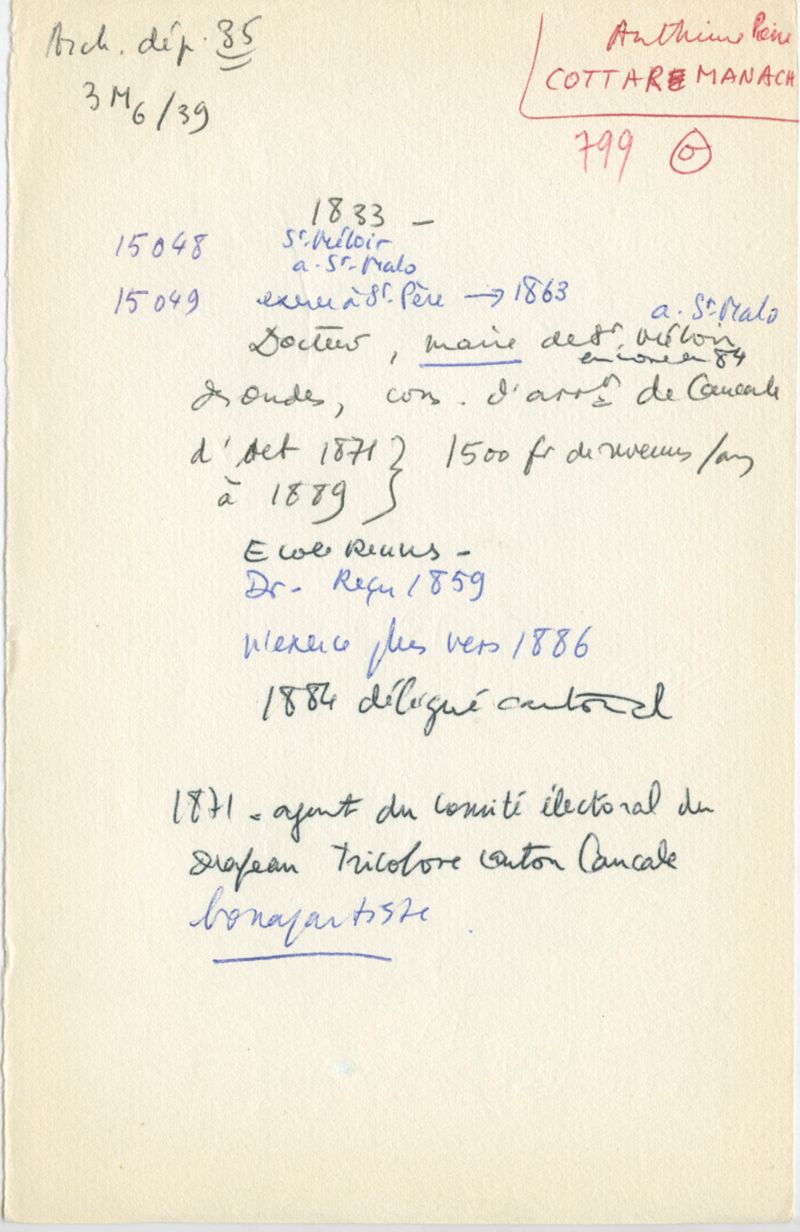 Arch. dép. 35
3 M 6/39
Anthime Pierre
COTTAREMANACH
799
1833 –
15048 St. Méloir
a. St-Malo
15049 exerce à St. Père → 1863
a. St-Malo
Docteur, maire de St. Méloir
encore en 84
des ondes, cons. d'arrt de Cancale
d'Oct 1871 } 1500 fr de revenus /an
à 1889 }
Ecole Rennes –
Dr. Reçu 1859
n'exerce plus vers 1886
1884 délégué cantonal
1871. agent du comité électoral du
drapeau tricolore canton Cancale
bonapartiste